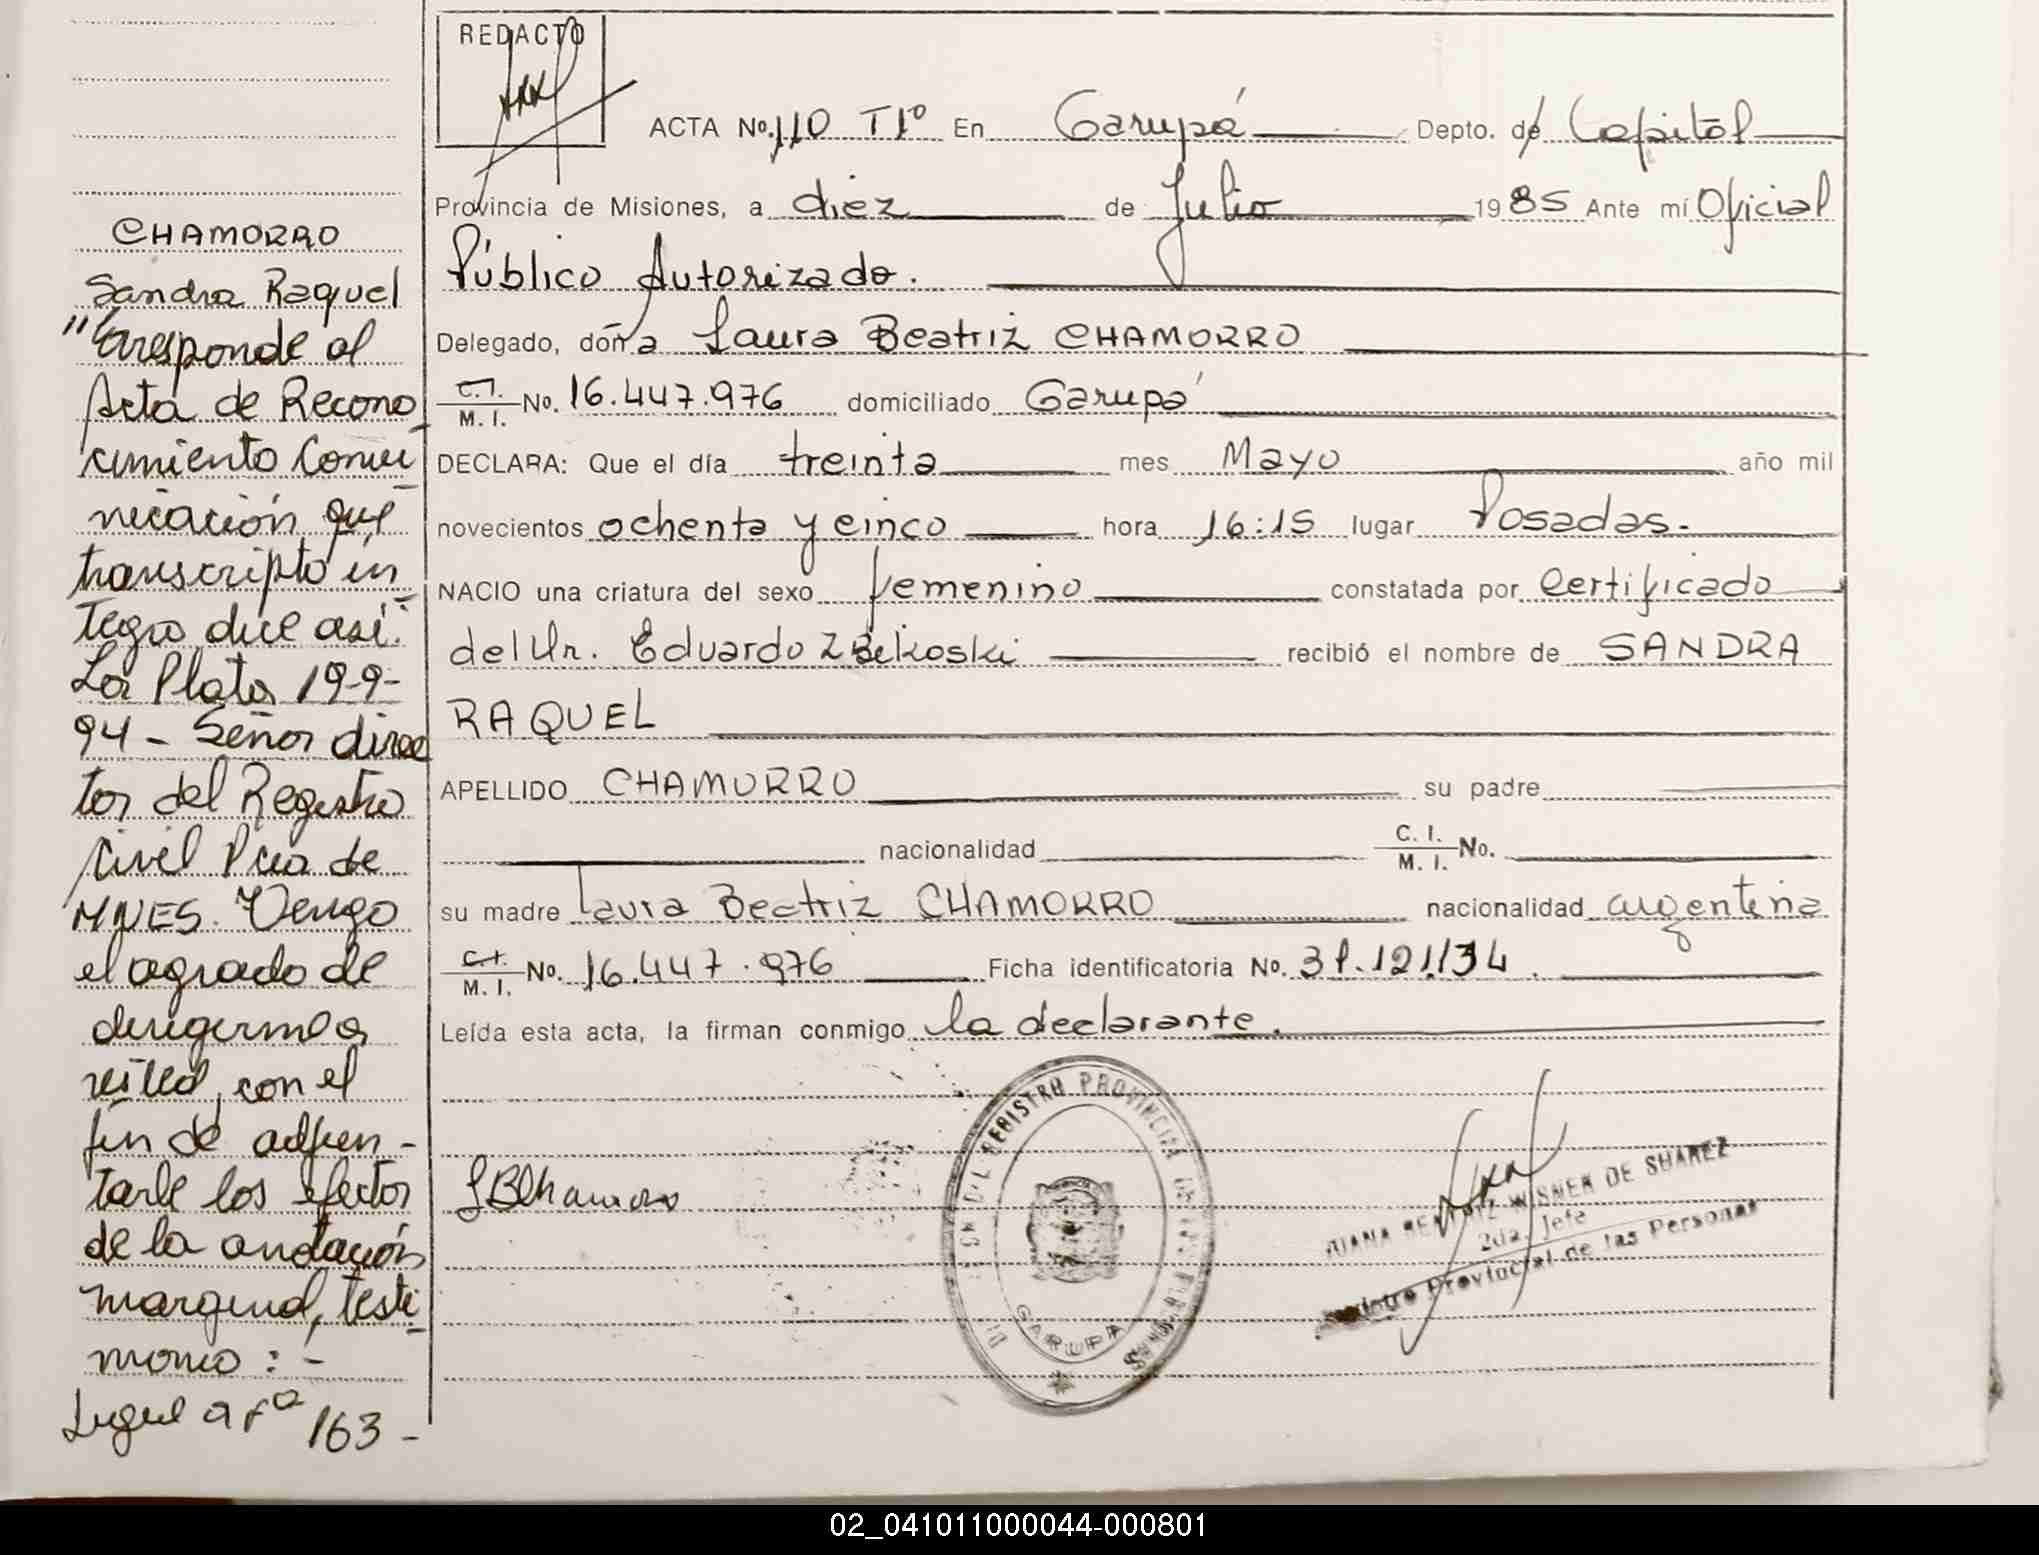 CHAMORRO
Sandra Raquel
"Corresponde al
Acta de Recono
cimiento Comu
nicación que
transcripto ín
tegro dice así:
La Plata 19-9-
94 - Señor direc
tor del Registro
Civil Pcia de
MNES. Vengo
el agrado de
dirigirme a
usted, con el
fin de adjun-
tarle los efectos
de la anotación
marginal, testi
monio : -
Sigue a Fº 163 -
REDACTO
ACTA No. 110 T1º En Garupá Depto. de Capital
Provincia de Misiones, a diez de Julio 1985 Ante mí Oficial
Público Autorizado.
Delegado, doña Laura Beatriz CHAMORRO
C. I.
M. I. No. 16.447.976 domiciliado Garupá
DECLARA: Que el día treinta mes Mayo año mil
novecientos ochenta y cinco hora 16:15 lugar Posadas.
NACIO una criatura del sexo femenino constatada por Certificado
del Dr. Eduardo Zbikoski recibió el nombre de SANDRA
RAQUEL
APELLIDO CHAMORRO su padre
nacionalidad C. I.
M. I. No.
su madre Laura Beatriz CHAMORRO nacionalidad argentina
C. I.
M. I. No. 16.447.976 Ficha identificatoria No. 31.121.134.
Leída esta acta, la firman conmigo la declarante.
LBChamorro
REGISTRO PROVINCIAL DE LAS PERSONAS
GARUPA
JUANA BEATRIZ WISNER DE SUAREZ
2da. Jefe
Registro Provincial de las Personas
02_041011000044-000801